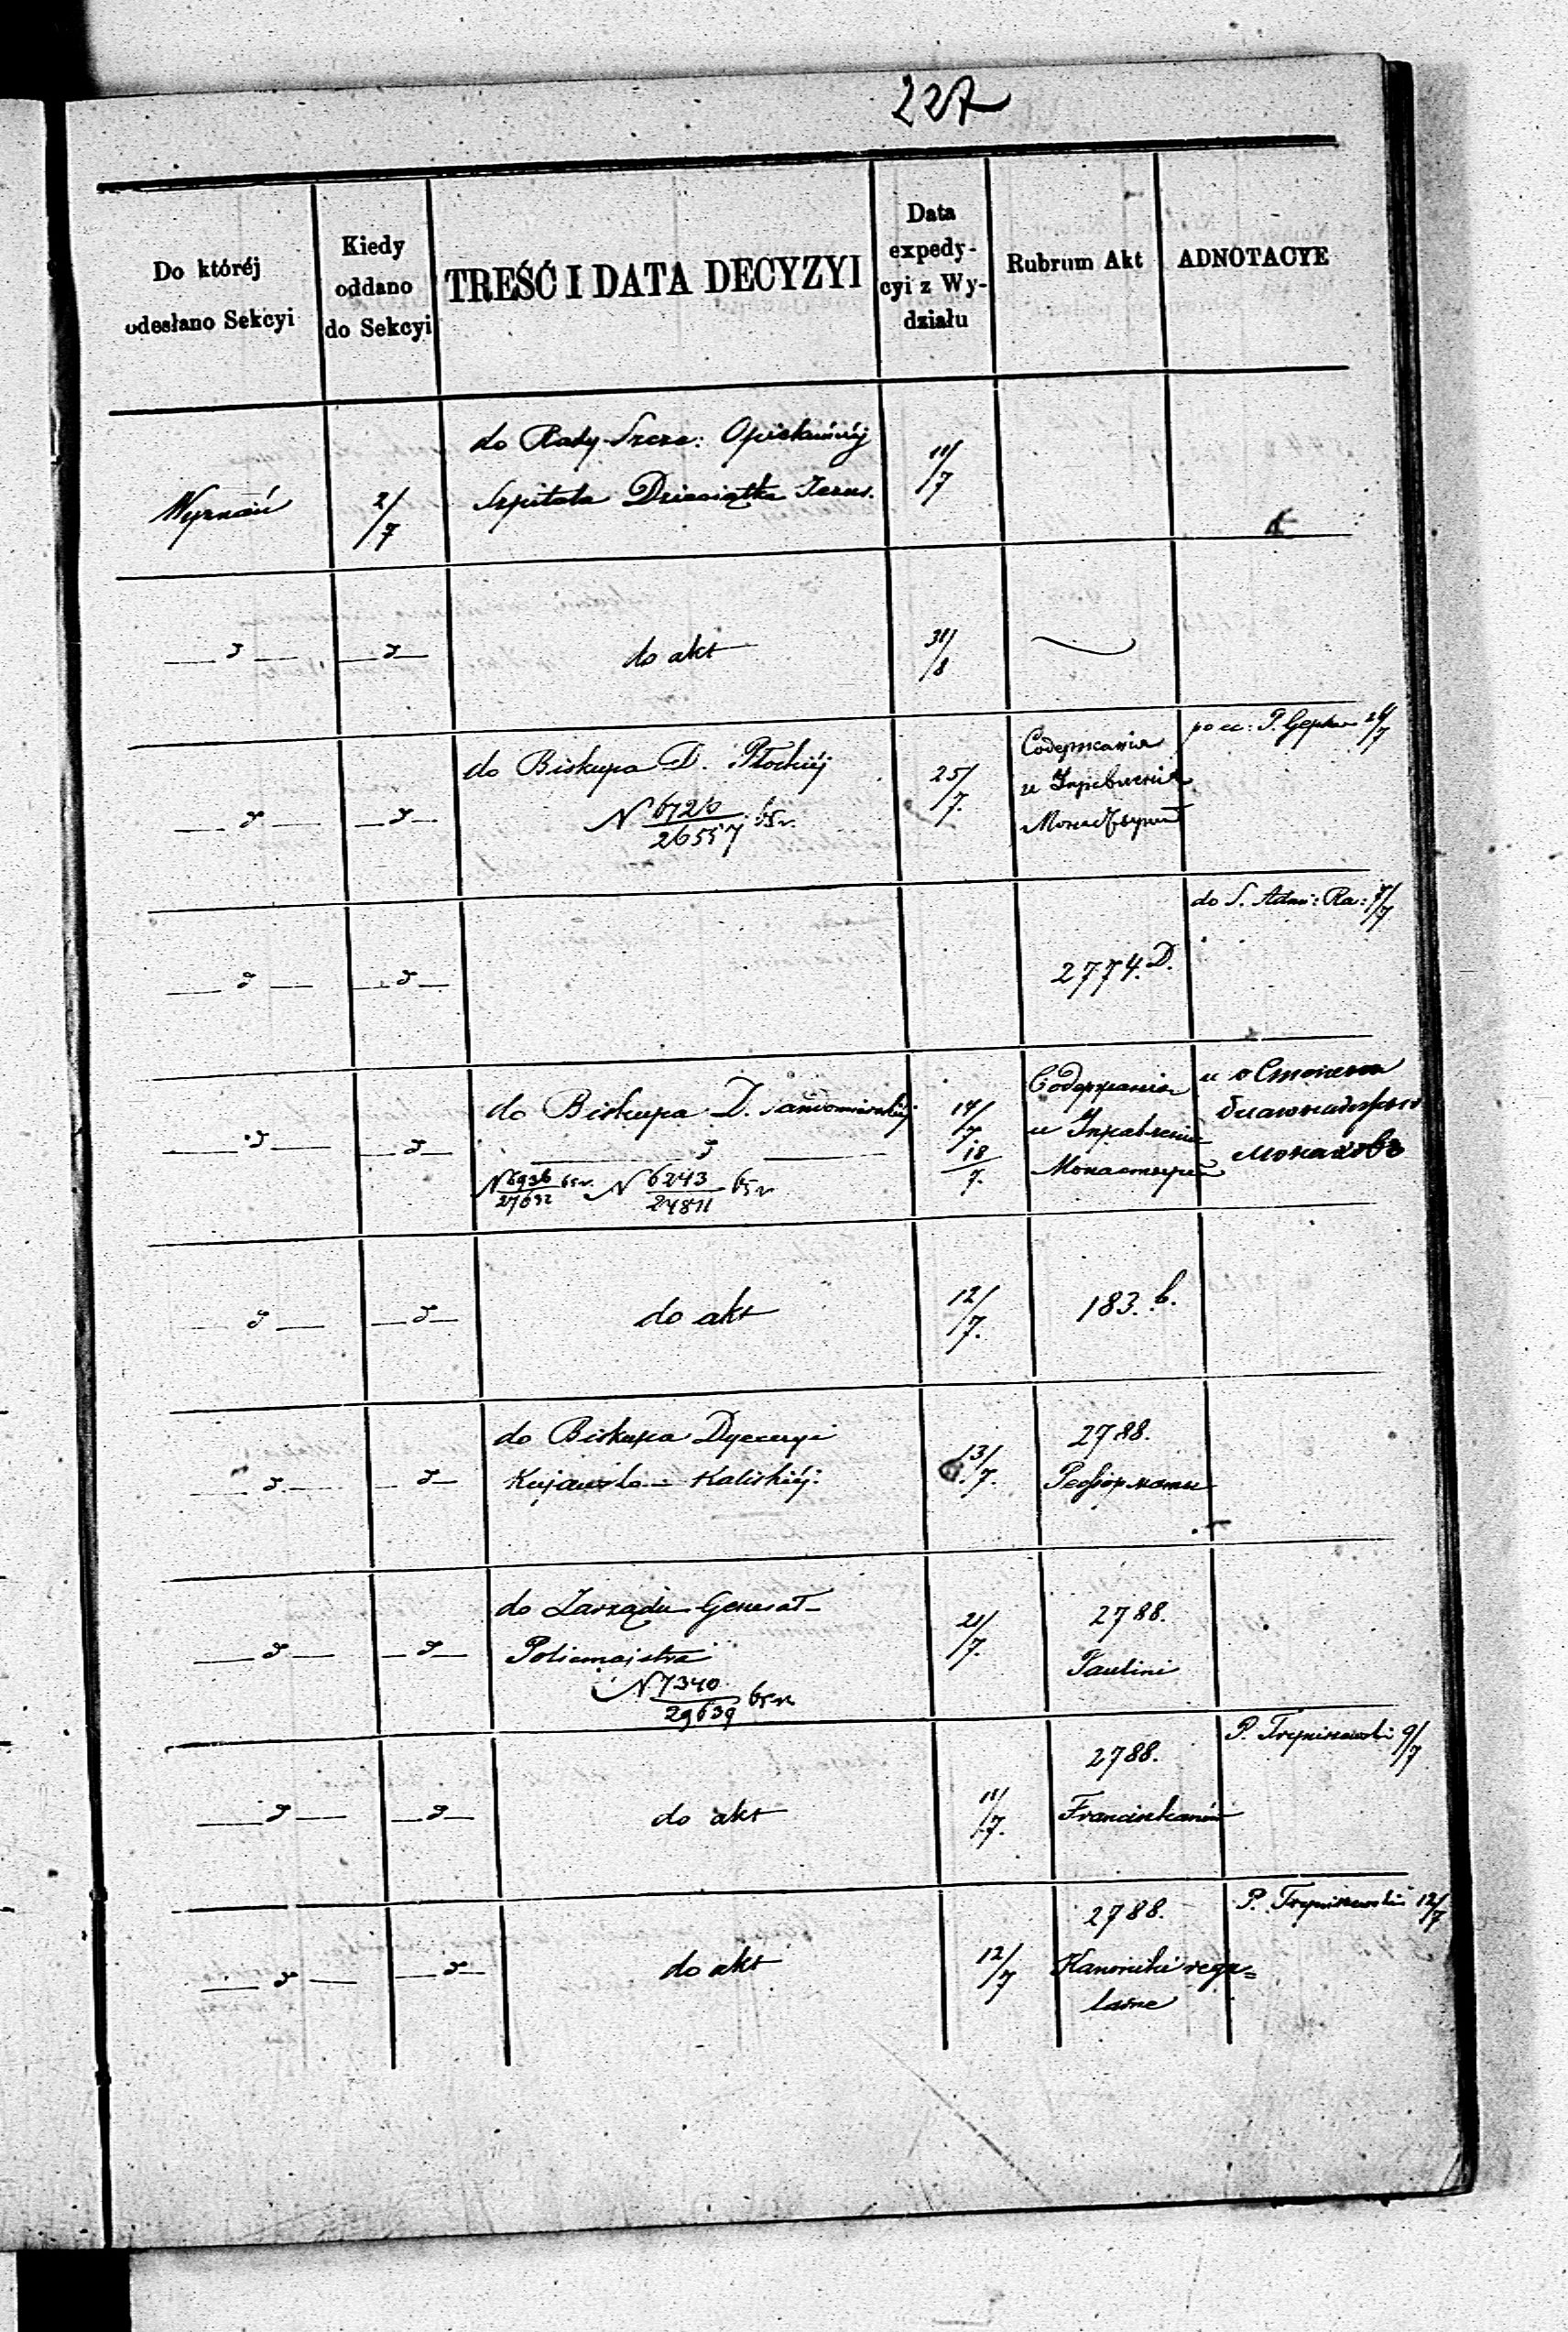 227
Do któréj
odesłano Sekcyi
Kiedy
oddano
do Sekcyi
TREŚĆ I DATA DECYZYI
Data
expedy-
cyi z Wy-
działu
Rubrum Akt
ADNOTACYE
Wyznań
2/7
do Rady Szcze: Opiekuńczéj
Szpitala Dzieciątka Jezus.
11/7
do akt
31/8
do Biskupa D. Płockiéj
N 6726/26557 65 r.
25/7.
Содержания
и Управления
Монастырей
24/7
do S. Adm: Ra: 7/7
2774. D.
do Biskupa D. Sandomierskiéj
N 6936/27692 65 r. N 6243/24811 65 r
17/7
18/7.
Содержания
и Управления
Монастырей
монахов
do akt
12/7.
183. b.
do Biskupa Dyecezyi
Kujawsko-Kaliskiéj.
13/7.
2788.
Реформаты
do Zarządu Generał-
Policmajstra
N 7340/29639 65 r.
21/7.
2788.
Paulini
do akt
11/7.
2788.
Franciszkanów
P. 9/7
do akt
12/7
2788.
Kanonicki regu=
larne
P. 12/7